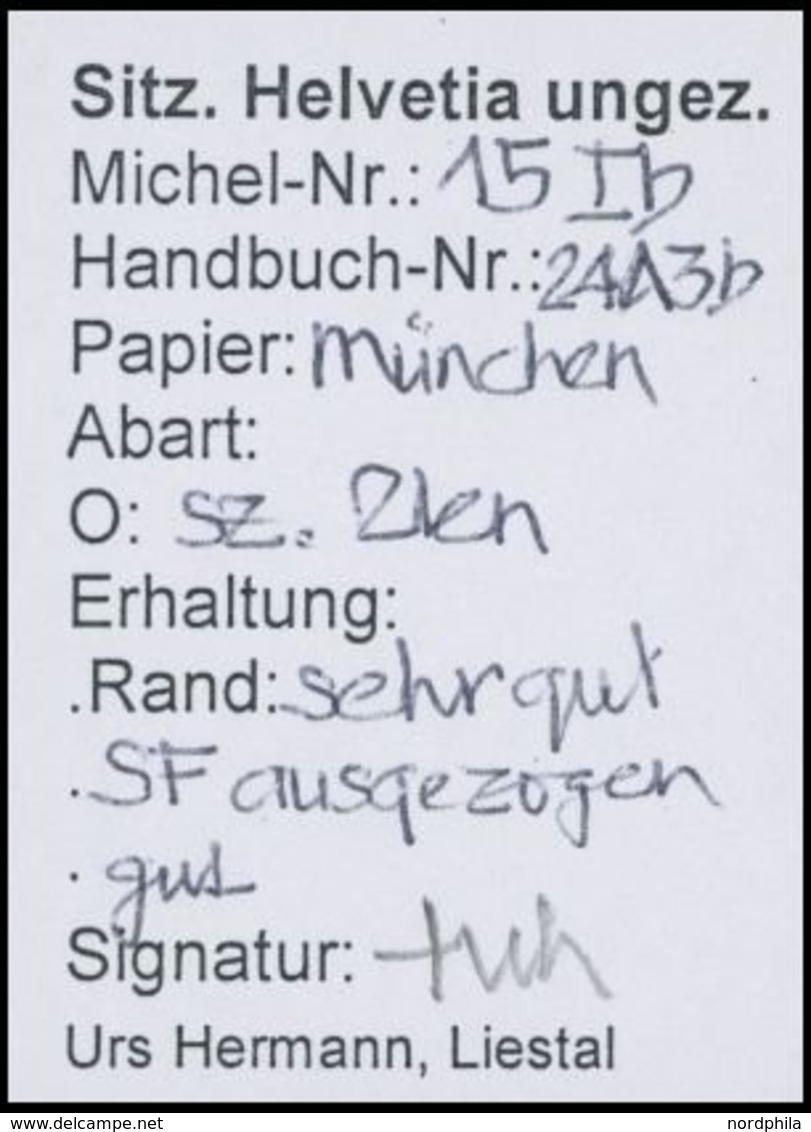 Sitz. Helvetia ungez.
Michel-Nr.: 15 Ib
Handbuch-Nr.: 24A3b
Papier: München
Abart:
O: sz.
Erhaltung:
.Rand: sehr gut
.SF ausgezogen
. gut
Signatur:
Urs Hermann, Liestal
www.delcampe.net
nordphila